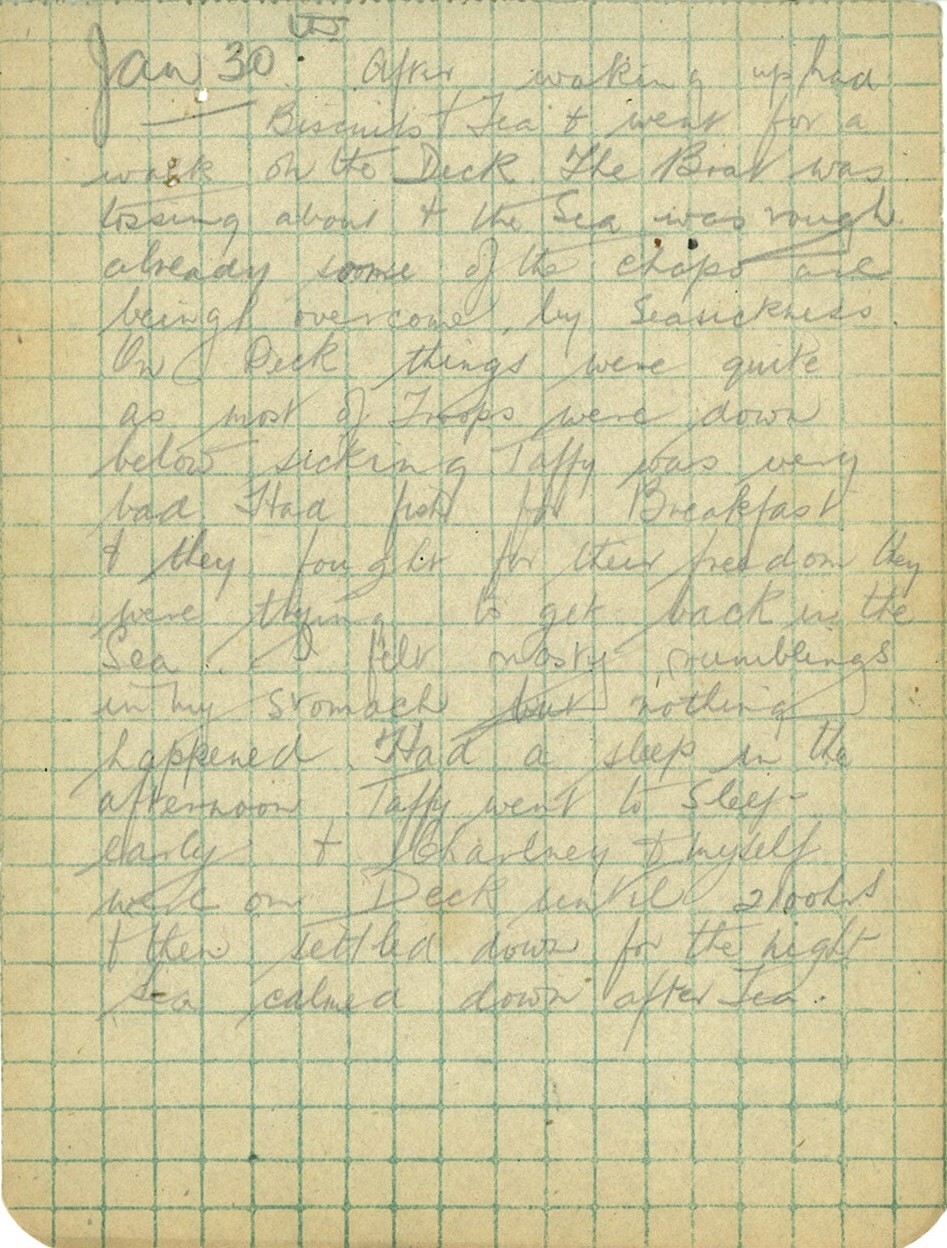 Jan 30th. After waking up had
Biscuits & Tea & went for a
walk on the Deck. The Boat was
tossing about & the Sea was rough.
already some of the chaps are
being overcome, by Seasickness.
On Deck things were quite
as most of Troops were down
below sicking Taffy was very
bad. Had fish for Breakfast
& they fought for their freedom they
were trying to get back in the
Sea. I felt nasty rumblings
in my stomach but nothing
happened. Had a sleep in the
afternoon Taffy went to Sleep
early & Charlney & myself
were on Deck until 2100hrs
& then settled down for the night
Sea calmed down after Tea.